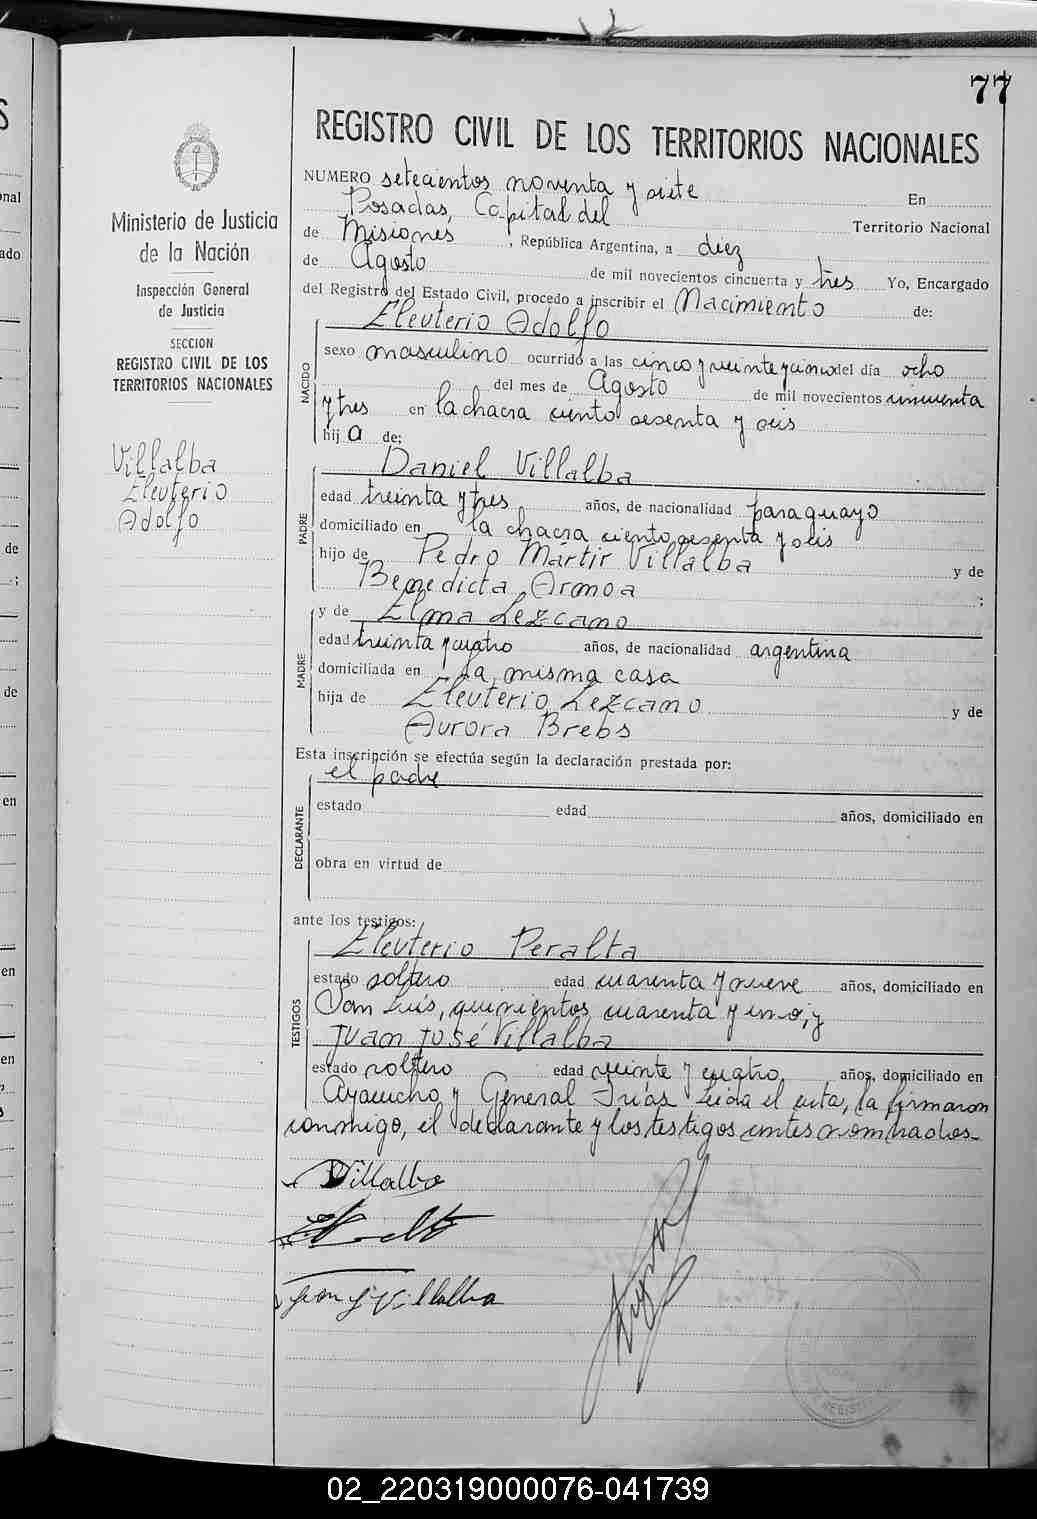 77
REGISTRO CIVIL DE LOS TERRITORIOS NACIONALES
Ministerio de Justicia
de la Nación
Inspección General
de Justicia
SECCION
REGISTRO CIVIL DE LOS
TERRITORIOS NACIONALES
Villalba
Eleuterio
Adolfo
NUMERO setecientos noventa y siete En
Posadas, Capital del Territorio Nacional
de Misiones, República Argentina, a diez
de Agosto de mil novecientos cincuenta y tres Yo, Encargado
del Registro del Estado Civil, procedo a inscribir el Nacimiento de:
Eleuterio Adolfo
NACIDO
sexo masculino ocurrido a las cinco y veinte y cinco del día ocho
del mes de Agosto de mil novecientos cincuenta
y tres en la chacra ciento sesenta y seis
hijo de:
Daniel Villalba
PADRE
edad treinta y tres años, de nacionalidad paraguayo
domiciliado en la chacra ciento sesenta y seis
hijo de Pedro Mártir Villalba y de
Benedicta Armoa ;
y de Elma Lezcano
MADRE
edad treinta y cuatro años, de nacionalidad argentina
domiciliada en la misma casa
hija de Eleuterio Lezcano y de
Aurora Brebs
Esta inscripción se efectúa según la declaración prestada por:
el padre
DECLARANTE
estado edad años, domiciliado en
obra en virtud de
ante los testigos:
Eleuterio Peralta
TESTIGOS
estado soltero edad cuarenta y nueve años, domiciliado en
San Luís, quinientos cuarenta y uno, y
Juan José Villalba
estado soltero edad veinte y cuatro años, domiciliado en
Ayacucho y General Frías Leida el acta, la firmaron
conmigo, el declarante y los testigos antes nombrados.
Villalba
Juan J Villalba
02_220319000076-041739